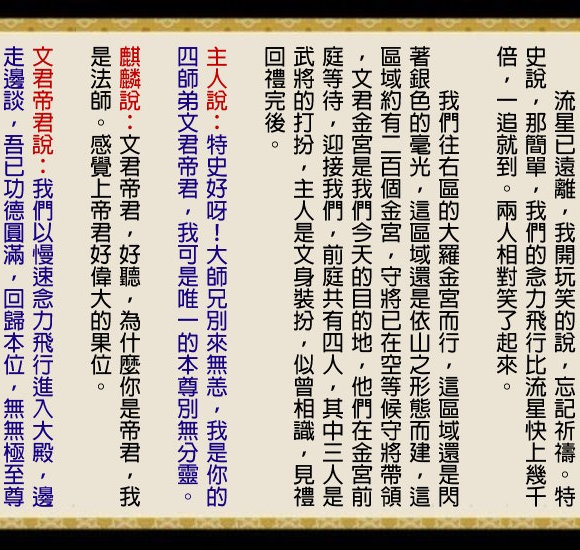 流星已遠離，我開玩笑的說，忘記祈禱。特
史說，那簡單，我們的念力飛行比流星快上幾千
倍，一追就到。兩人相對笑了起來。
我們往右區的大羅金宮而行，這區域還是閃
著銀色的毫光，這區域還是依山之形態而建，這
區域約有二百個金宮，守將已在空等候守將帶領
，文君金宮是我們今天的目的地，他們在金宮前
庭等待，迎接我們，前庭共有四人，其中三人是
武將的打扮，主人是文身裝扮，似曾相識，見禮
回禮完後。
主人說：特史好呀！大師兄別來無恙，我是你的
四師弟文君帝君，我可是唯一的本尊別無分靈。
麒麟說：文君帝君，好聽，為什麼你是帝君，我
是法師。感覺上帝君好偉大的果位。
文君帝君說：我們以慢速念力飛行進入大殿，邊
走邊談，吾已功德圓滿，回歸本位，無無極至尊